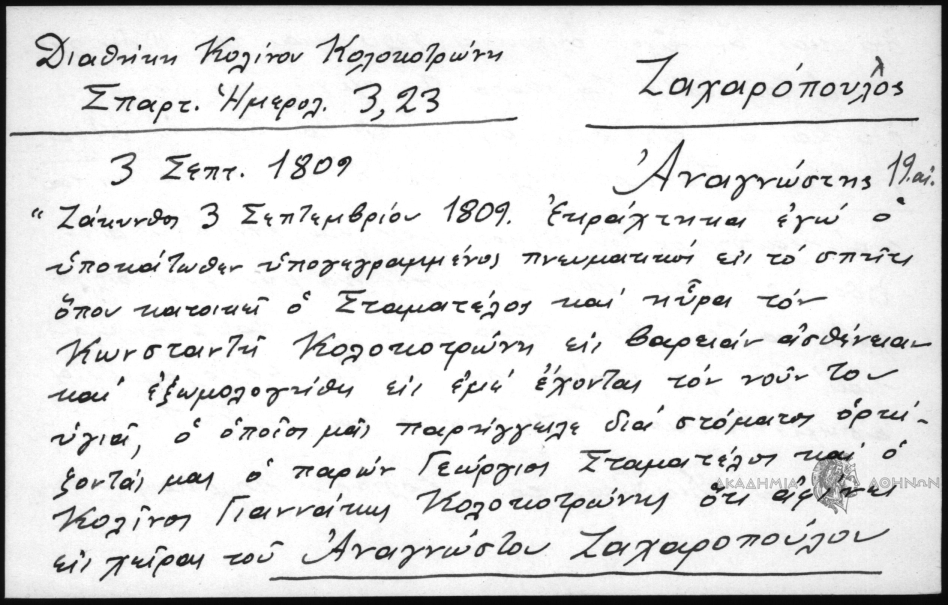 Διαθήκη Κολίνου Κολοκοτρώνη
Σπαρτ. Ἡμερολ. 3, 23
Ζαχαρόπουλος
3 Σεπτ. 1809
Ἀναγνώστης 19. αἰ.
"Ζάκυνθος 3 Σεπτεμβρίου 1809. Ἐκράχτηκα ἐγώ ὁ
ὑποκάτωθεν ὑπογεγραμμένος πνευματικός εἰς τό σπήτι
ὅπου κατοικεῖ ὁ Σταματέλος καί ηὗρα τόν
Κωνσταντῆ Κολοκοτρώνη εἰς βαρειάν ἀσθένειαν
καί ἐξωμολογήθη εἰς ἐμέ ἔχοντας τόν νοῦν του
ὑγιᾶ, ὁ ὁποῖος μᾶς παρήγγειλε διά στόματος ὁρκί-
ζοντάς μας ὁ παρών Γεώργιος Σταματέλος καί ὁ
Κολῖνος Γιαννάκης Κολοκοτρώνης ὅτι ἀφίνει
εἰς χεῖρας τοῦ Ἀναγνώστου Ζαχαροπούλου
ΑΚΑΔΗΜΙΑ ΑΘΗΝΩΝ